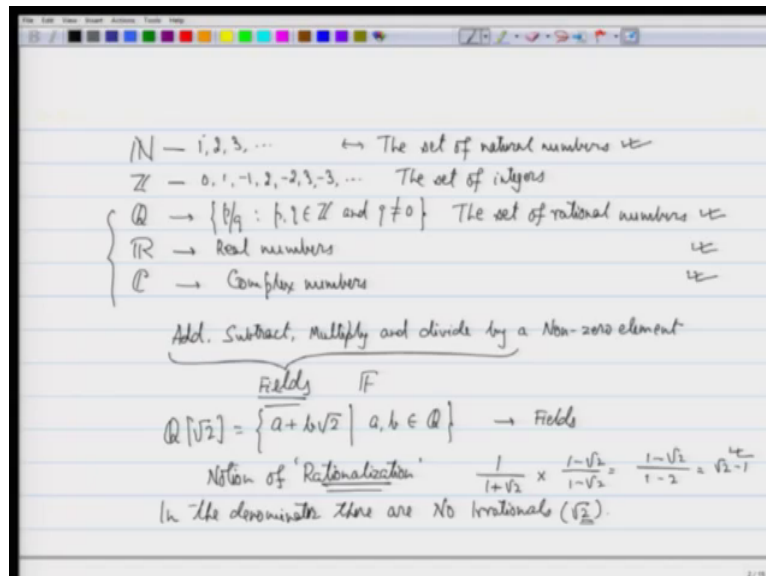 File Edit View Insert Actions Tools Help
ℕ — 1, 2, 3, ... ↔ The set of natural numbers
ℤ — 0, 1, -1, 2, -2, 3, -3, ... The set of integers
ℚ → {p/q : p, q ∈ ℤ and q ≠ 0} The set of rational numbers
ℝ → Real numbers
ℂ → Complex numbers
Add. Subtract, Multiply and divide by a Non-zero element
Fields 𝔽
ℚ[√2] = {a + b√2 | a, b ∈ ℚ} → Fields
Notion of "Rationalization" 1/(1+√2) × (1-√2)/(1-√2) = (1-√2)/(1-2) = √2-1
In the denominator there are No Irrationals (√2).